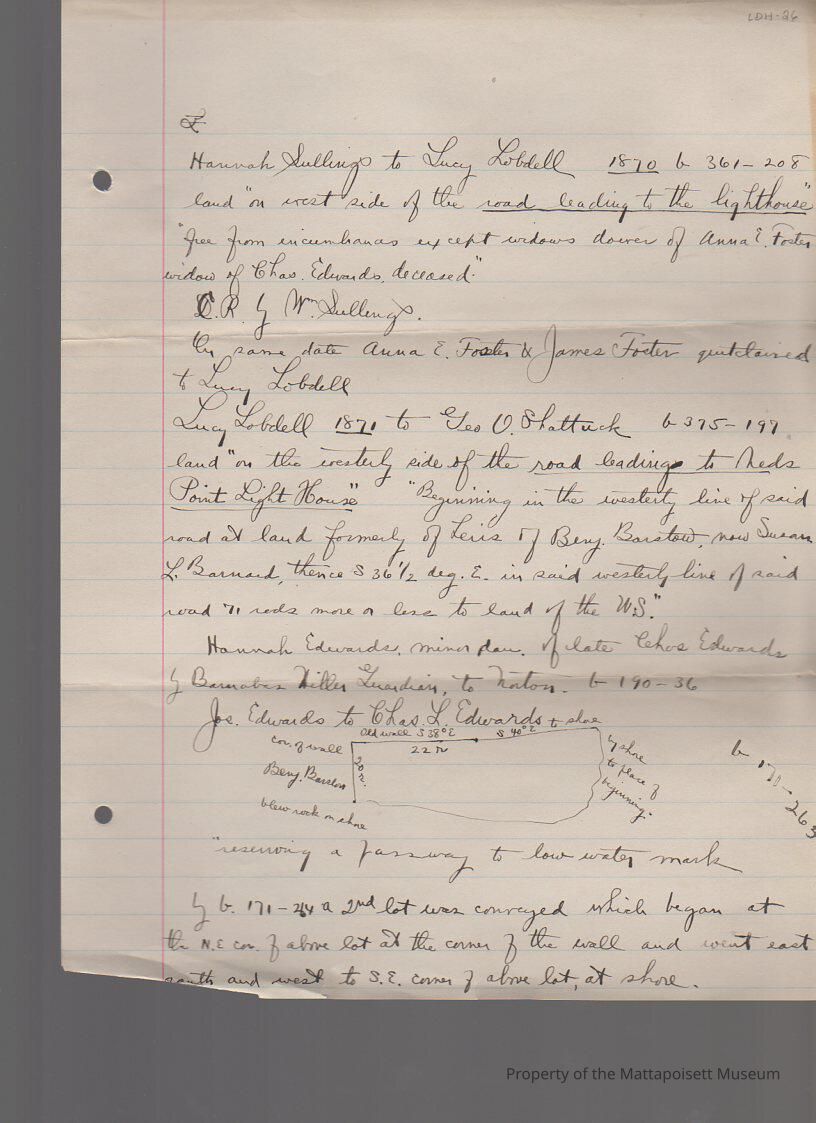 LDH-26
Hannah Sullings to Lucy Lobdell 1870 b 361-208
land "on west side of the road leading to the lighthouse"
"free from incumbances except widows dower of Anna E. Foster
widow of Chas. Edwards, deceased"
C.R. by Wm. Sullings.
On same date Anna E. Foster & James Foster quitclaimed
to Lucy Lobdell
Lucy Lobdell 1871 to Geo O. Shattuck b 375-197
land "on the westerly side of the road leading to Neds
Point Light House" "Beginning in the westerly line of said
road at land formerly of heirs of Benj. Barstow, now Susan
L. Barnard, thence S 36 1/2 deg. E. in said westerly line of said
road 71 rods more or less to land of the U.S."
Hannah Edwards, minor dau. of late Chas Edwards
by Barnabas Hiller Guardian, to Norton. b 190-36
Jos. Edwards to Chas. L. Edwards
Old wall S 38° E S 40° E to shore
cor. of wall 22 r
Benj. Barstow 20 r.
blew rock on shore
by shore
to place of
beginning."
b 170-263
"reserving a passway to low water mark
by b. 171-244 a 2nd lot was conveyed which began at
the N.E cor. of above lot at the corner of the wall and went east
south and west to S.E. corner of above lot, at shore.
Property of the Mattapoisett Museum